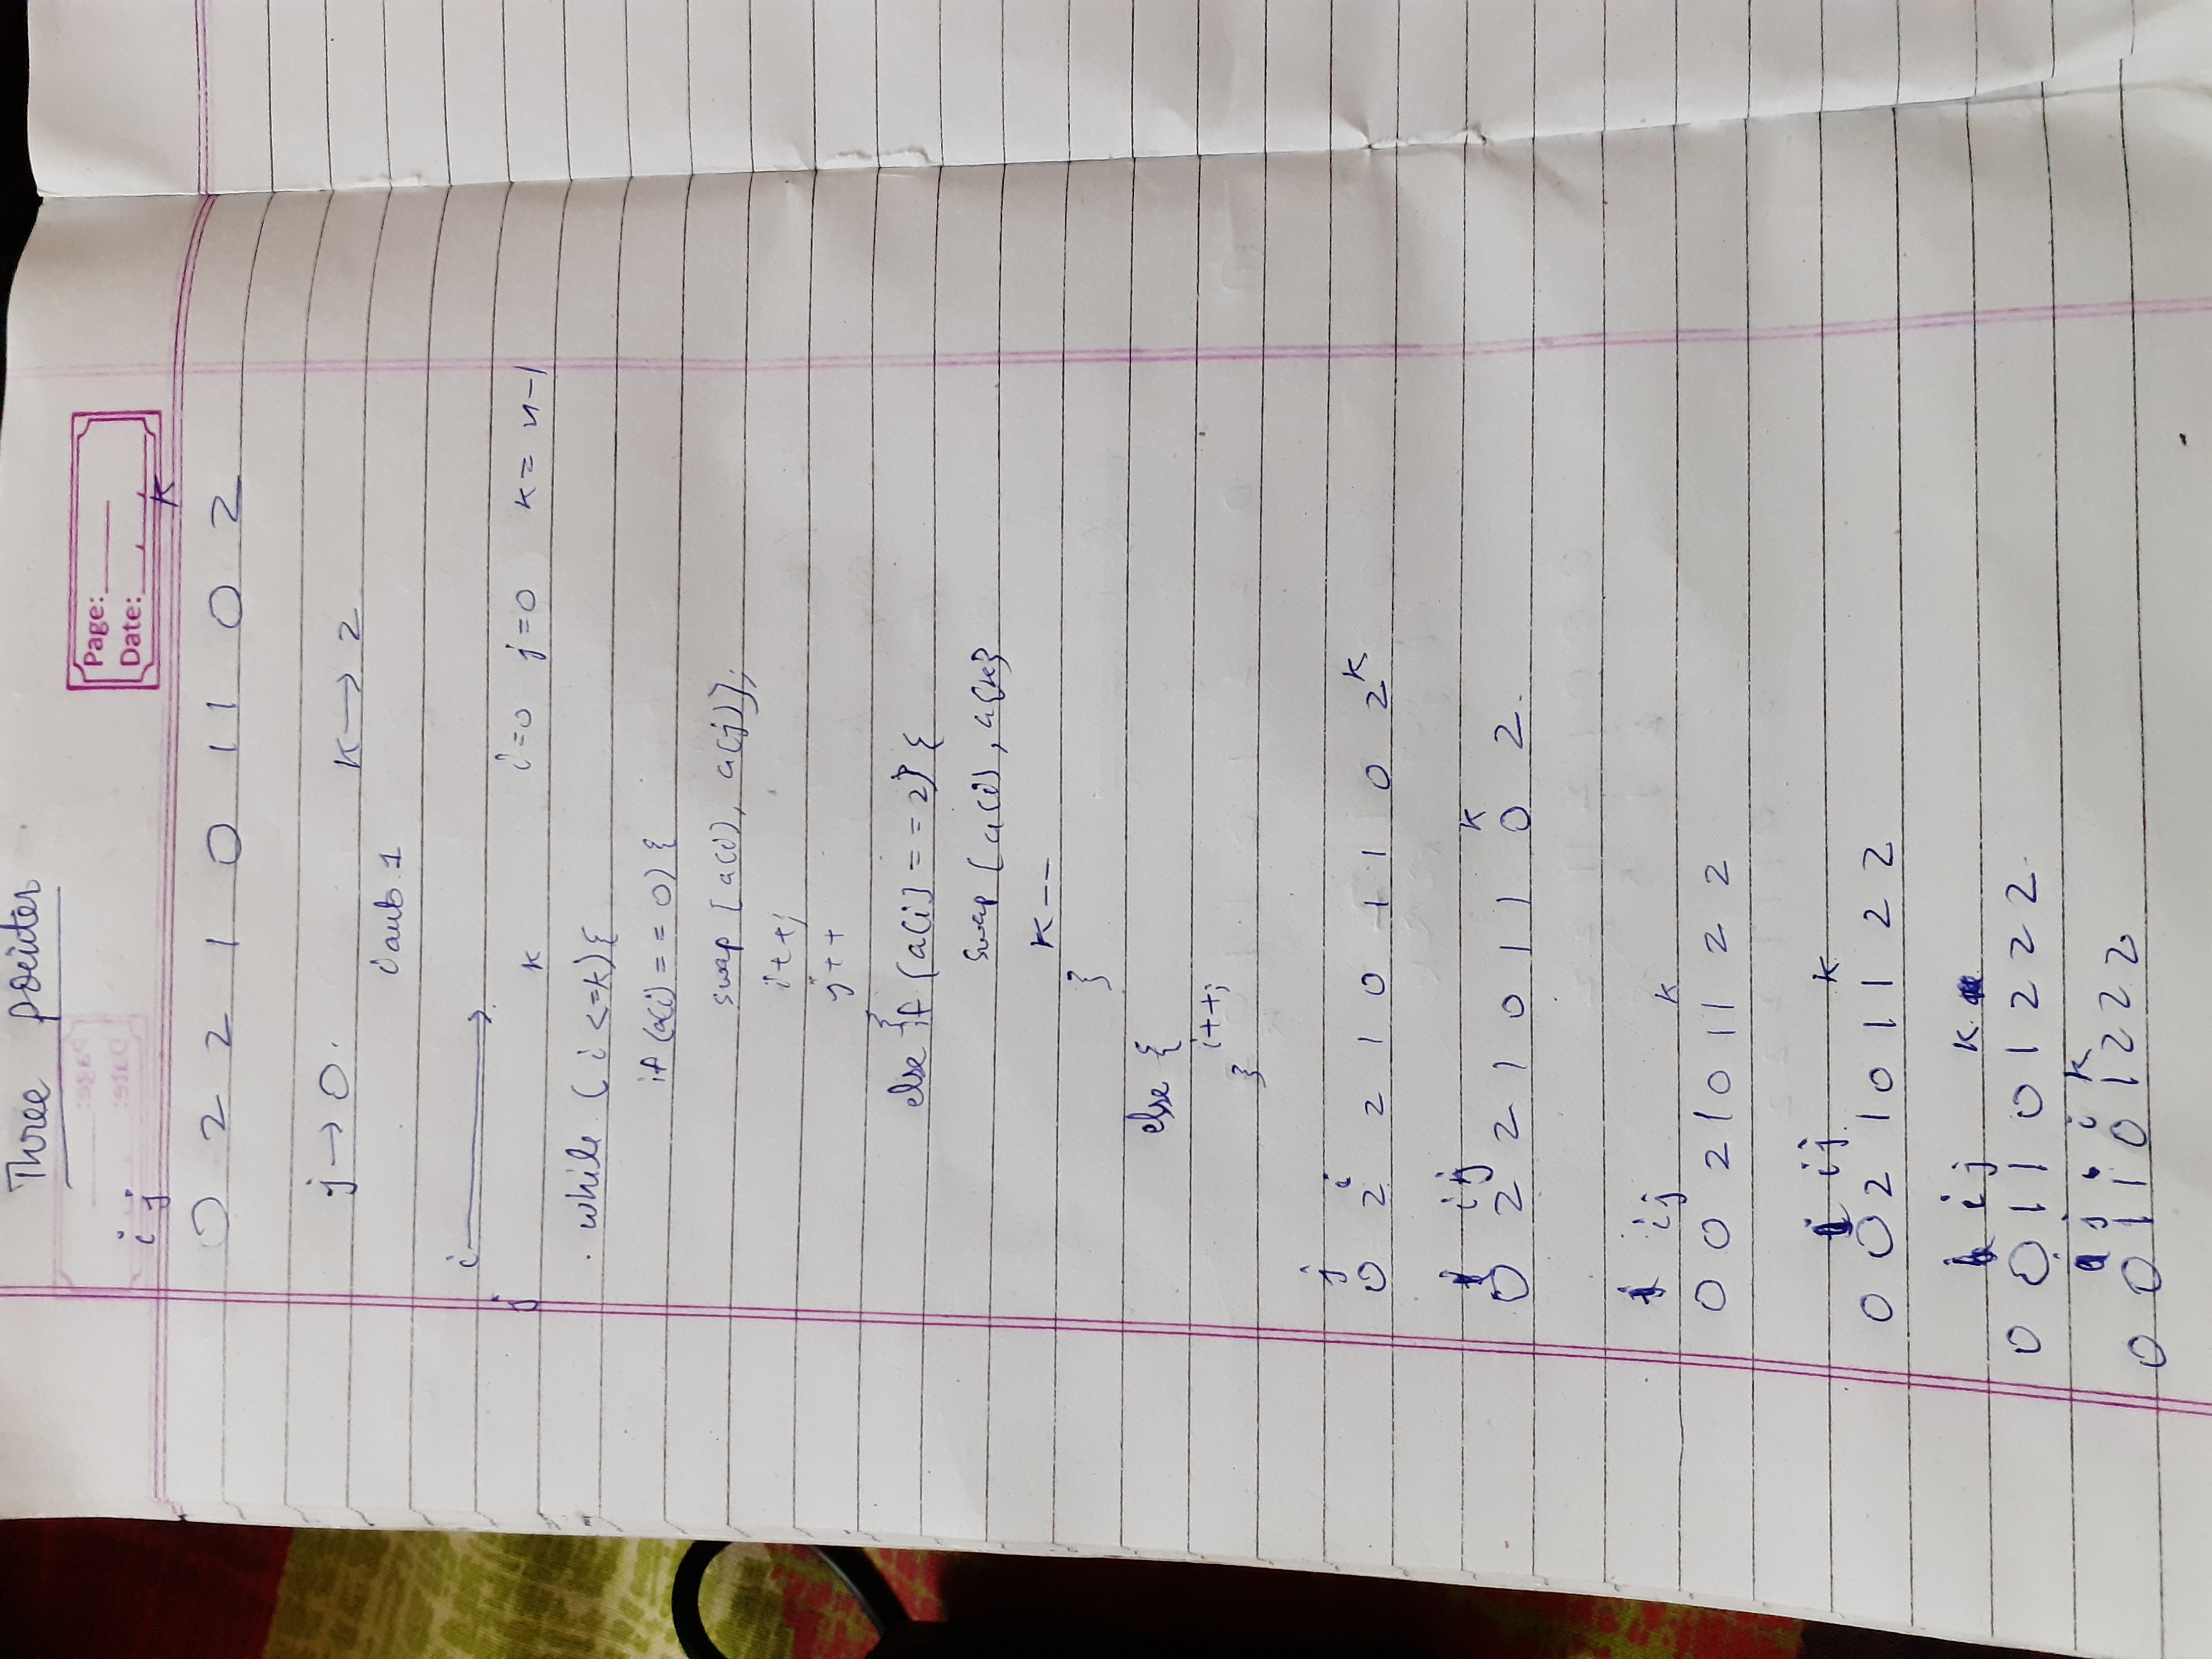 Three pointer
Page:
Date:
i j
K
0 2 2 1 0 1 1 0 2
j → 0. K → 2
i aut 1
i →
j
K i=0 j=0 K = n-1
while (i <=k) {
if (a(i) == 0) {
swap [a(i), a(j)];
i++;
j++
}
else if (a[i] == 2) {
swap (a(i), a{k}
K--
}
else {
i++;
}
j i
0 2 2 1 0 1 1 0 2 K
i j K
0 2 2 1 0 1 1 0 2.
i j K
0 0 2 1 0 1 1 2 2
i j K
0 0 2 1 0 1 1 2 2
i j K
0 0 1 1 0 1 2 2 2
j i K
0 0 1 1 0 1 2 2 2